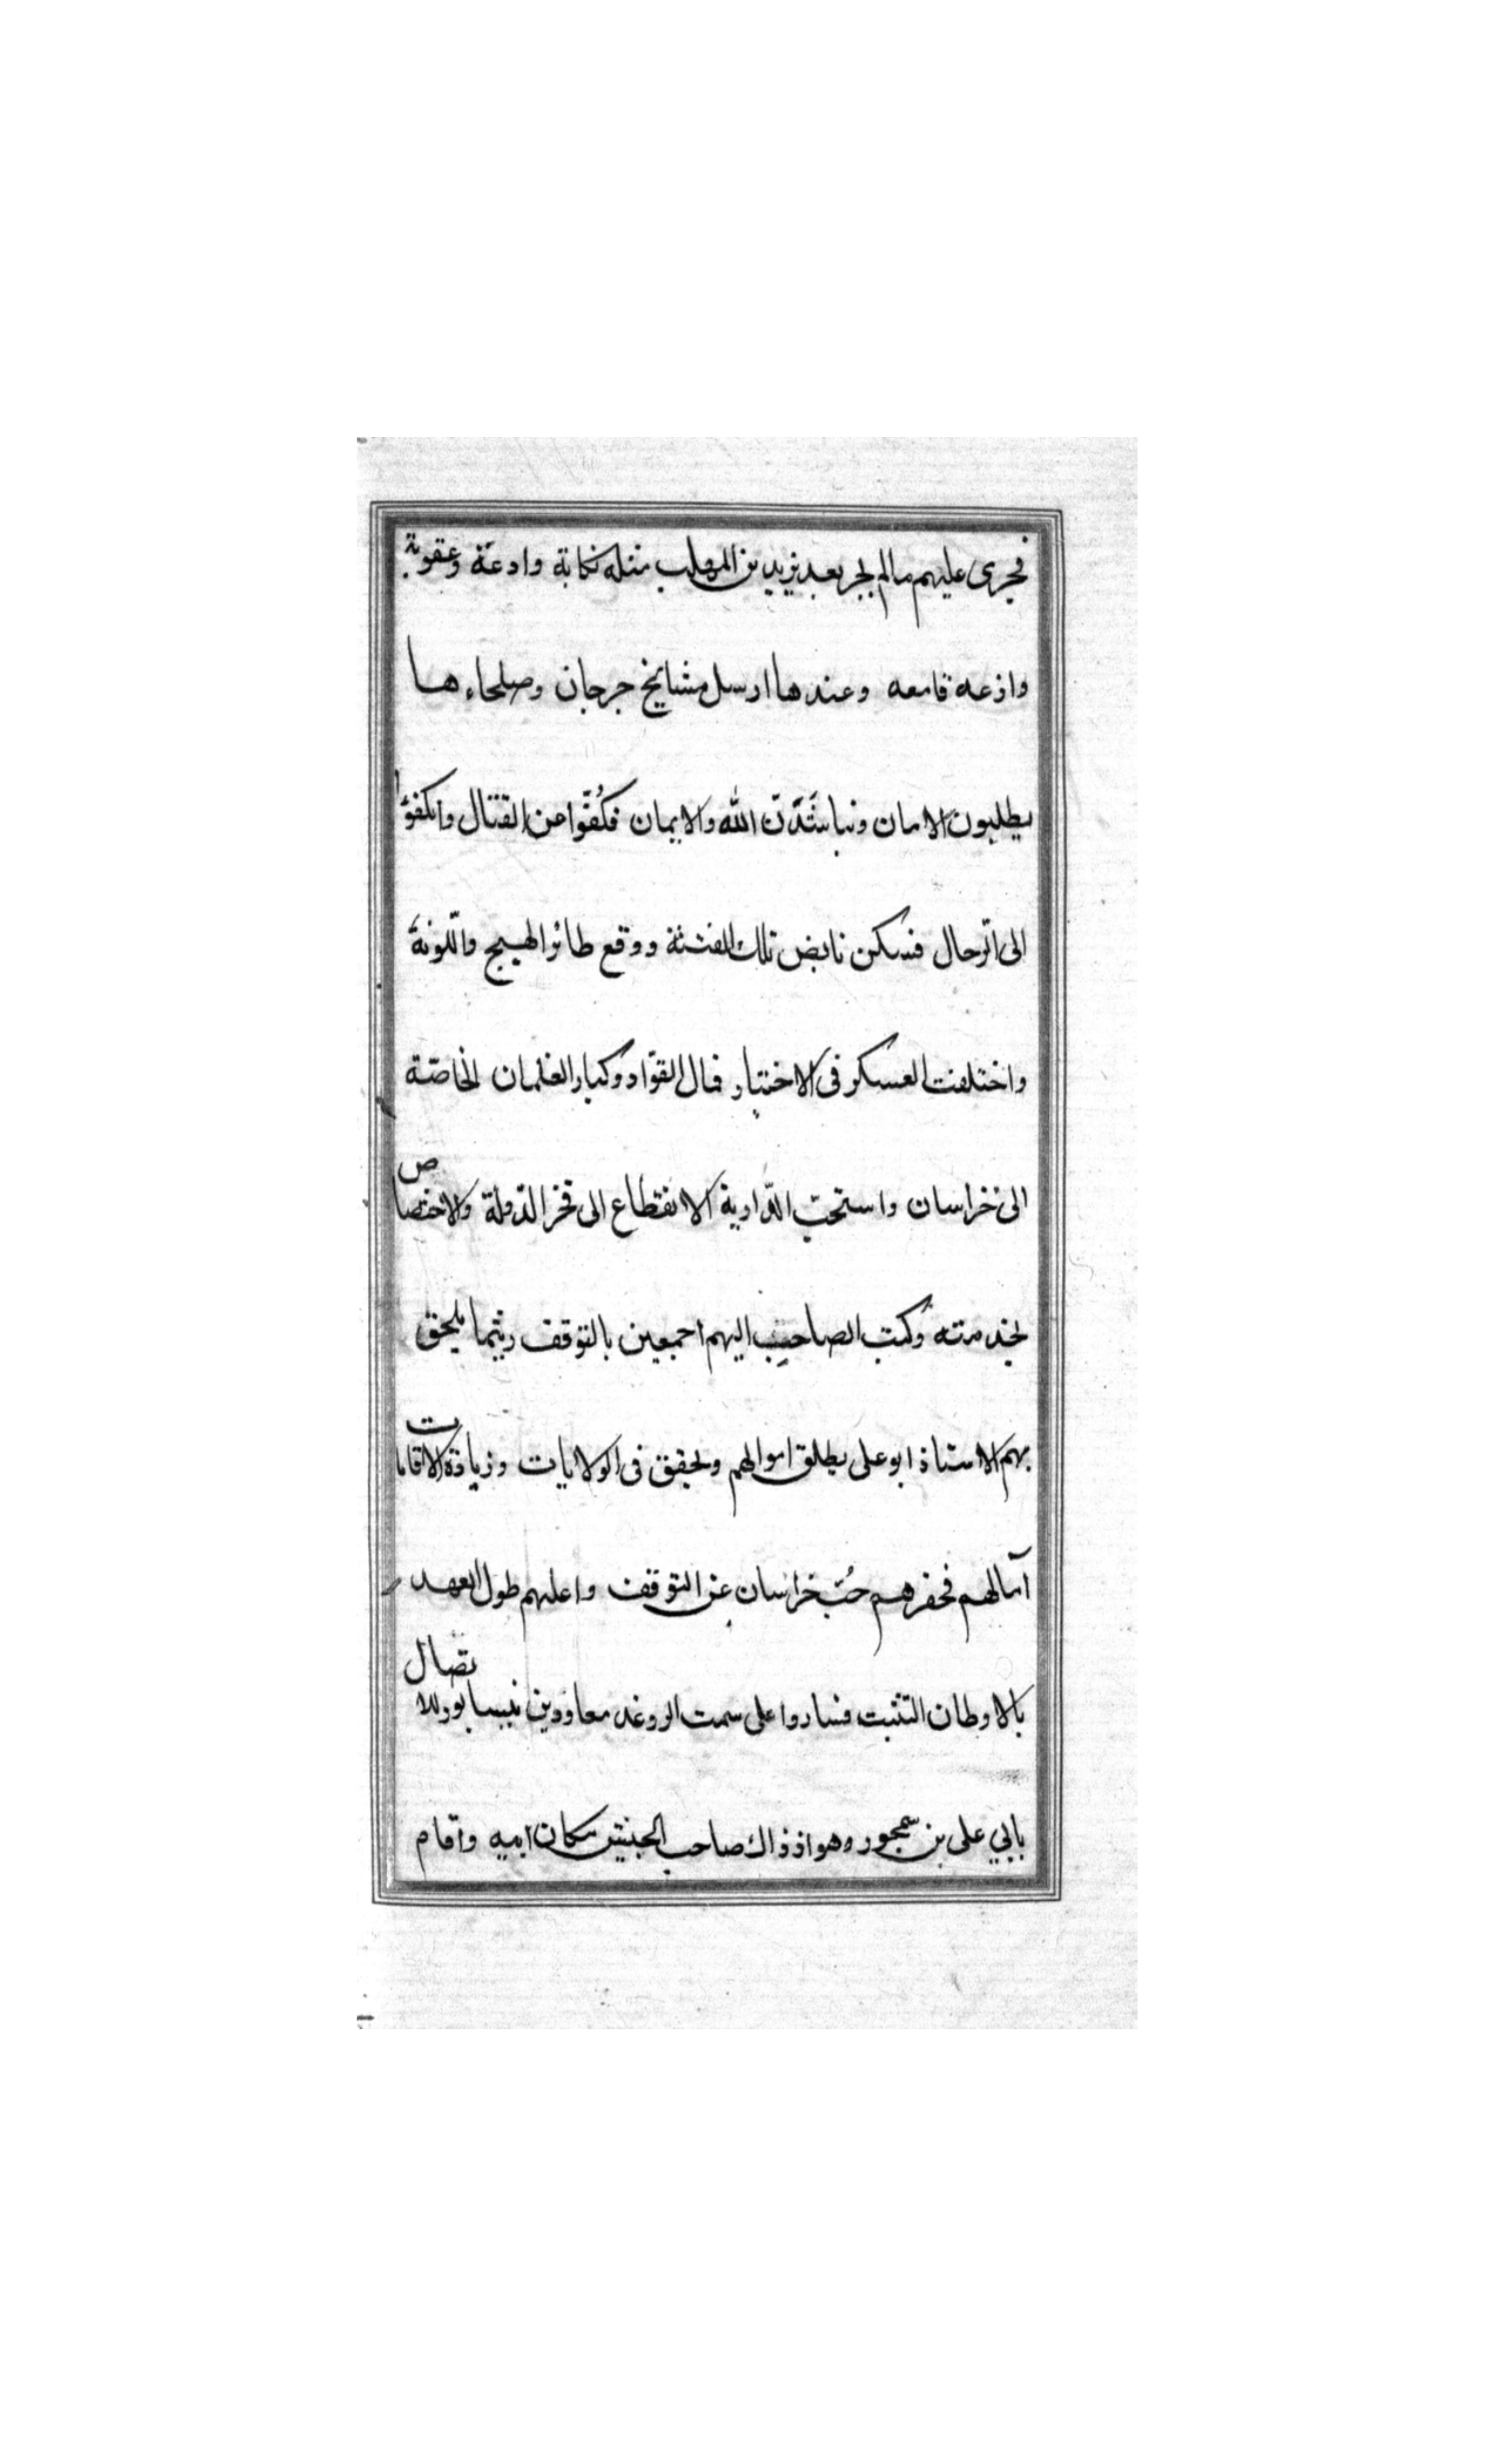 فجرى عليهم مالم يجر بعد يزيد بن المهلب مثله نكاية وادعة وعقوبة
وازعه قامعه وعندها ارسل مشايخ جرجان وصلحاءها
يطلبون الامان ويناشدن الله والايمان فكفوا عن القتال وانكفوا
الى الرحال فسكن نابض تلك الفتنة ووقع طائر الهيج واللوثة
واختلفت العسكر فى الاختيار فمال القواد وكبار الغلمان الخاصة
الى خراسان واستحب الدارية الانقطاع الى فخر الدولة والاختصاص
بخدمته وكتب الصاحب اليهم اجمعين بالتوقف ريثما يلحق
بهم الاستاذ ابو على يطلق اموالهم ويحقق فى الولايات وزيادة الاقامات
آمالهم فحفزهم حب خراسان عن التوقف واعلهم طول العهد
بالاوطان التثبت فساروا على سمت الروغد معاودين نيسابور للاتصال
بابي على بن سمجور وهو اذ ذاك صاحب الجيش مكان ابيه واقام